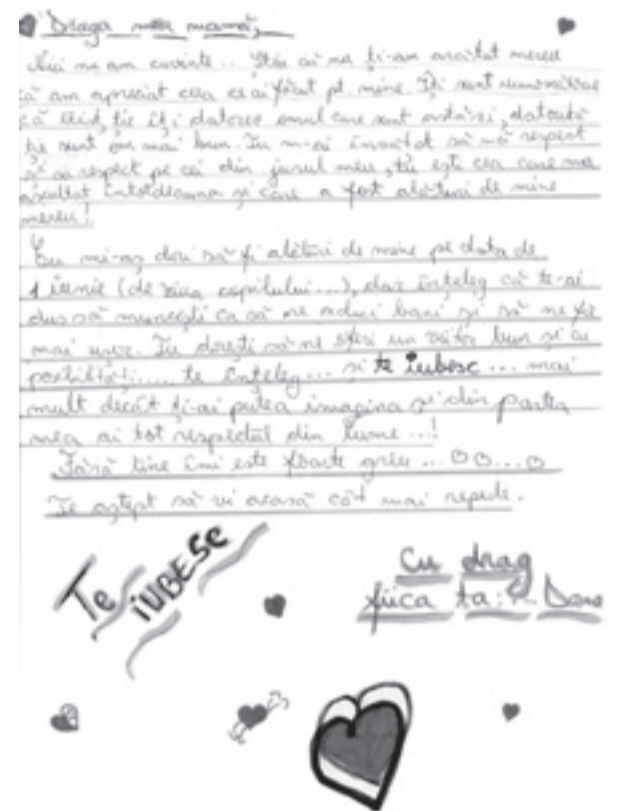 Draga mea mamă,
Nici nu am cuvinte... Știu că nu ți-am arătat mereu
că am apreciat ceea ce ai făcut pt. mine. Îți sunt recunoscătoare
că exist, ție îți datorez omul care sunt astăzi, datorită
ție sunt om mai bun. Tu m-ai învățat să mă respect
și să respect pe cei din jurul meu, tu ești cea care m-a
ascultat întotdeauna și care a fost alături de mine
mereu!
Eu mi-aș dori să fi alături de mine pe data de
1 iunie (de ziua copilului...), dar înțeleg că te-ai
dus să muncești ca să ne aduci bani și să ne fie
mai ușor. Tu dorești să ne oferi un viitor bun și cu
posibilități.... te înțeleg... și te iubesc... mai
mult decât ți-ai putea imagina și din partea
mea ai tot respectul din lume...!
Fără tine îmi este foarte greu...
Te aștept să vi acasă cât mai repede.
Te iUBESC
Cu drag
fiica ta: